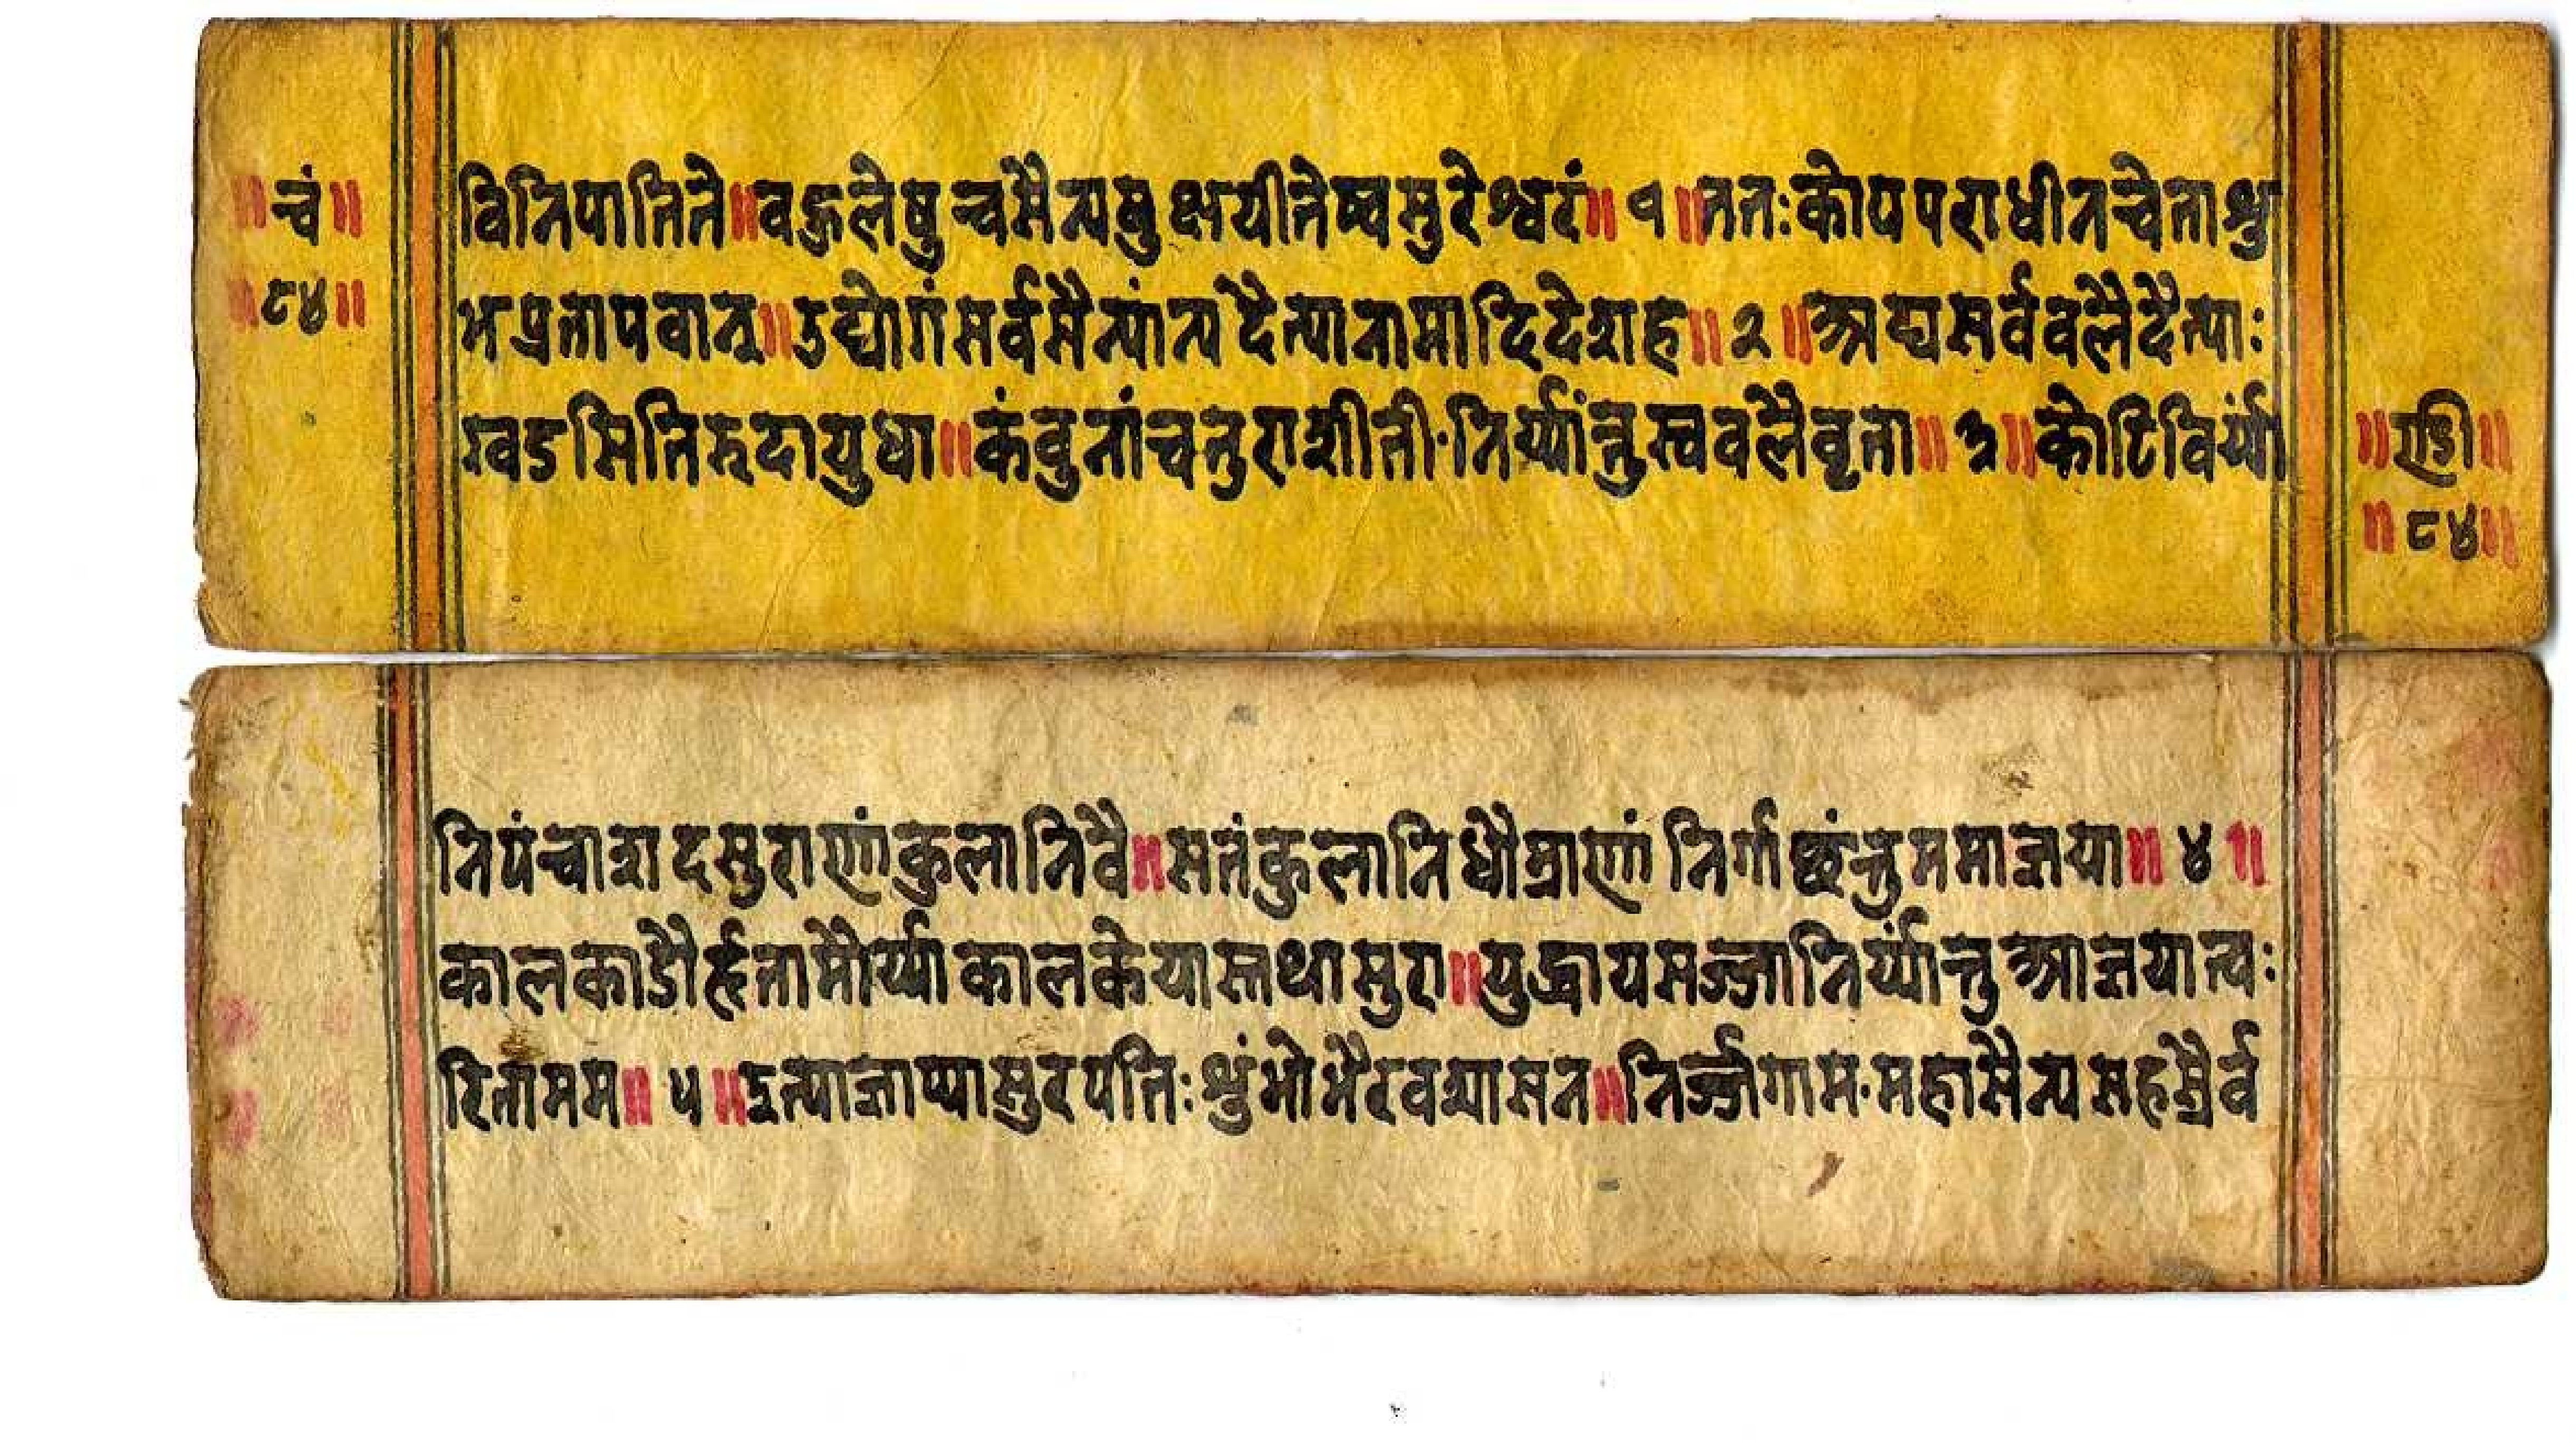 ॥ चं ॥
॥ ८४ ॥
विनिपातिते ॥ वहुलेषु च सैन्यषु क्षयीतेष्वसुरेश्वरं ॥ १ ॥ ततः कोपपराधीनचेताशु
भ प्रतापवान् ॥ उद्योगं सर्वसैन्यांन्य दैत्यानामादिदेश ह ॥ २ ॥ अद्य सर्ववलैदैत्याः
खडसितिरुदायुधा ॥ कंवुनांचतुराशीती निर्य्यांन्तु स्ववलैवृता ॥ ३ ॥ कोटिविर्य्या
॥ ण्डी ॥
॥ ८४ ॥
निपंचाशदसुराणांकुलानि वै ॥ सतं कुलानि धौम्राणां निर्गछंन्तु ममाज्ञया ॥ ४ ॥
कालकाडौर्हृता मौर्य्या कालकेयास्तथासुरा ॥ युद्धाय सज्जा निर्य्यांन्तु आज्ञया त्वः
रिता मम ॥ ५ ॥ इत्याज्ञाप्यासुरपतिः शुंभो भैरवशासन ॥ निर्ज्जगाम महासैन्य सहस्रैर्व